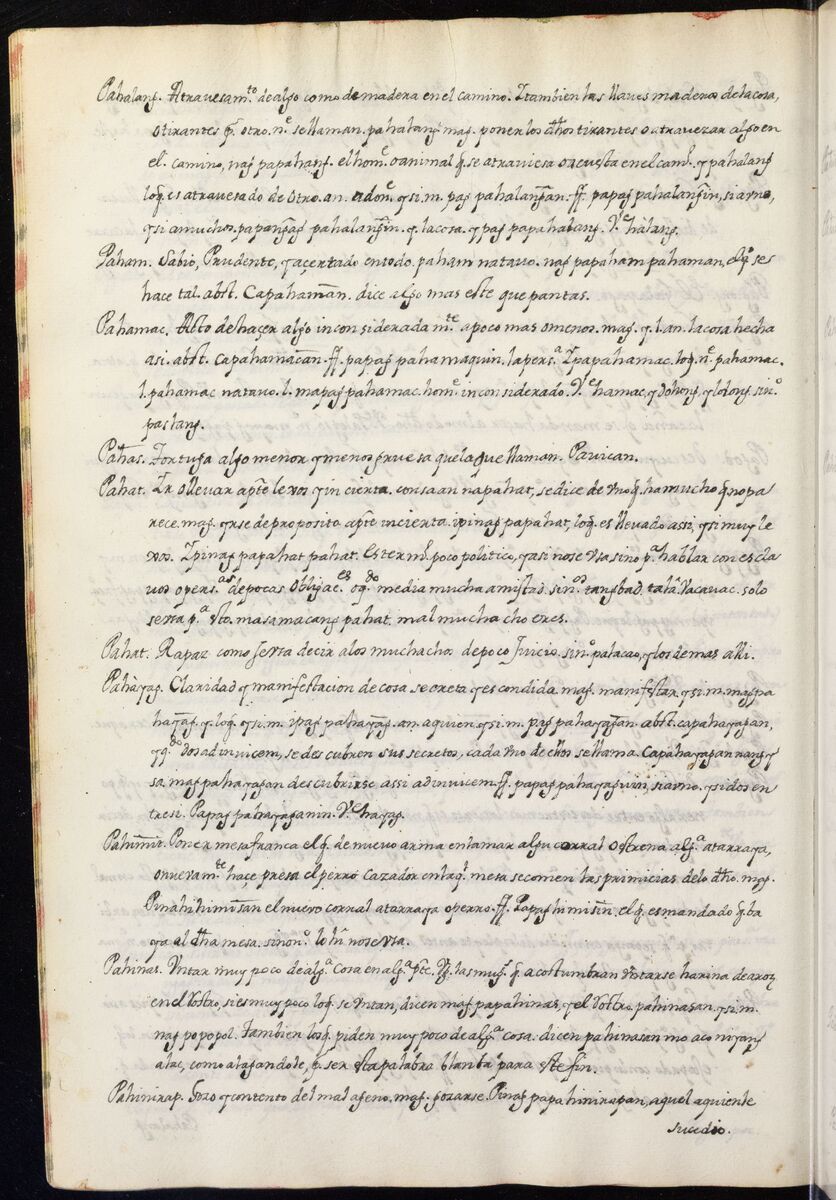 Pahalang. Atravesam.to de algo como de madera en el camino. Ytambien las llaves maderos de la cosa,
otirantes q̃. otro. n.e se llaman. pahalang mag. poner los dh̃os tirantes o atravezar algo en
el. camino, nag papahang. el hom.e o animal q̃. se atraviesa o acuesta en el cam.o y pahalang
loq̃. es atravesado de otro. an. adon.e ysi.m. pag pahalangan. ff. papag pahalangin, siaruo,
ysi amuchos. papangag pahalangin. y lacosa. ypag papahalang. V.e halang.
Paham. Sabio, Prudente, yaçertado entodo. paham natauo. nag papaham pahaman, elq̃.e ses
hace tal. abst. Capahaman. dice algo mas este que pantas.
Pahamac. Acto de haçer algo inconsiderada m.te apoco mas omenos. mag. y. l. an. lacosa hecha
asi. abst. capahamacan. ff. papag pahamaquin. lapers.a Ypapahamac. loq̃. n.e pahamac.
l. pahamac natauo. l. mapag pahamac. hom.e inconsiderado. V.e hamac, ydohong, ylolong sin.o
paslang.
Pahas. Tortuga algo menor ymenos gruesa quelaque llaman. Pavican.
Pahat. Yr ollevar apte lexos yincierta. consaan napahat, se dice de vno q̃. hamucho q̃nopa
rece. mag. yrse deproposito apte incierta. ipinag papahat, loq̃. es llevado assi, ysi muy le
xos. Ypinag papahat pahat. Es term.o poco politico, yasi nose vsa sino p.a hablar con escla
vos opers.as depocas obligac.es oq.do media mucha amistad. sin.os tangbad, tala Vacavac. solo
seusa p.a vto. masamacang pahat. mal muchacho eres.
Pahat. Rapaz como sevsa decir alos muchachos depoco Juicio. sin.o palacao, ylos demas alli.
Pahàyag. Claridad ymanifestacion de cosa secreta yescondida. mag. manifestar, ysi.m. magpa
hayag. y loq̃. ysi.m. ipag pahayag. an. aquien, ysi.m. pag pahayagan. abst. capahayagan,
yq.do dos adinvicem, se descubren sus secretos, cada vno de ellos se llama. Capahayagan nang y
sa. mag pahayagan descubrirse assi adinvicem ff. papag pahayaguin, siaruo. ysidos en
tresi. Papag pahayaganin. V.e hayag.
Pahimis. Poner mesa franca el q̃. de nuevo arma enlamar algu corral o estrena alg.a atarraya,
onuevam.te haçe presa el perro cazador enlaq.l mesa secomen las primicias delo dh̃o. mag.
Pinahihimisan el nuevo corral atarraya operro. ff. Papag himisin. el q̃. es mandado q̃. ba
ya al dh̃a mesa. sinon.o lohi nosevsa.
Pahinas. Vntar muy poco de alg.a cosa en alg.a pte. Vg. las mug.s q̃. acostumbran vntarse harina dearoz
en el Rostro, sies muy poco loq̃. se vntan, dicen mag papahinas, yel Rostro. pahinasan. ysi.m.
nag popopol. Tambien losq̃. piden muy poco de alg.a cosa: dicen pahinasan mo aco niyang
alac, como alagandole, p. ser esta palabra blanta para este fin.
Pahinirap. Gozo ycontento del mal ageno. mag. gozarse. Pinag papahinirapan, aquel aquiente
sucedio.